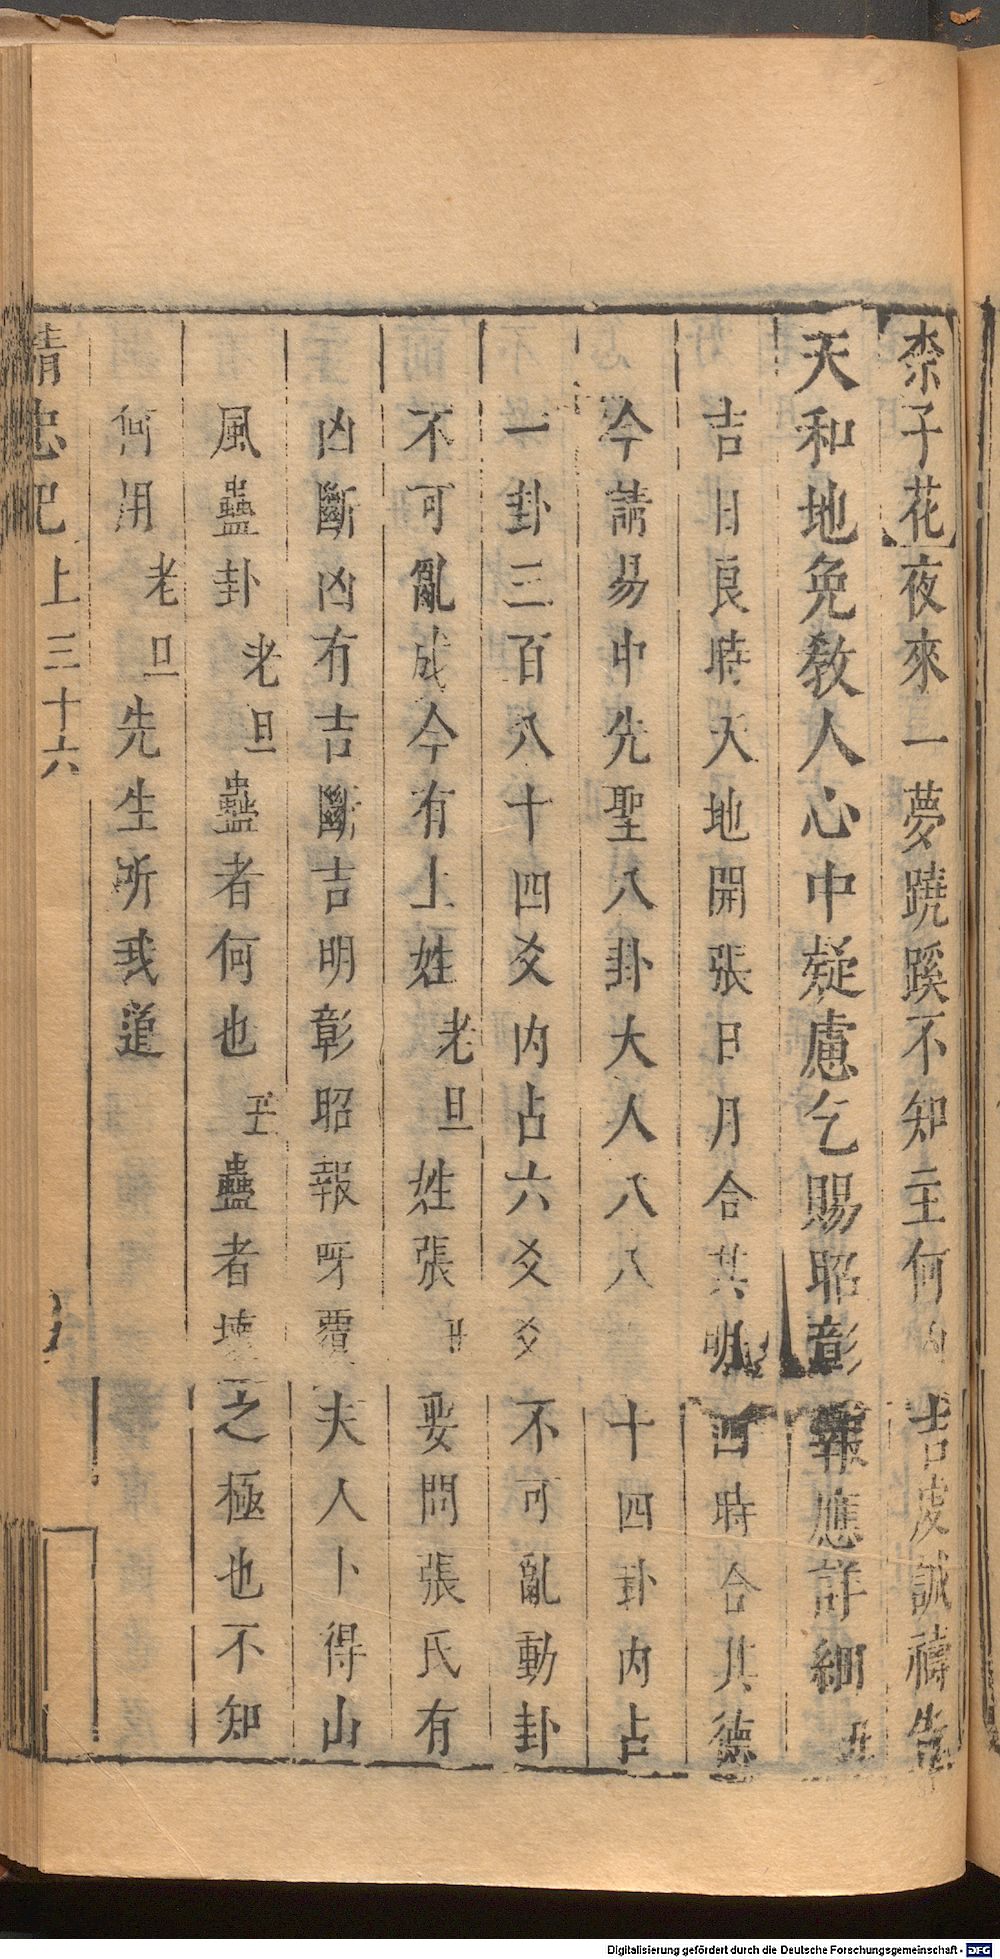 柰子花夜來一夢蹺蹊不知主何凶吉虔誠禱告
天和地免教人心中疑慮乞賜昭彰報應詳細丑
吉日良時天地開張日月合其明四時合其德
今請易中先聖八卦大人八八　十四卦內占
一卦三百八十四爻內占六爻爻不可亂動卦
不可亂成今有上姓老旦姓張丑娶問張氏有
凶斷凶有吉斷吉明彰昭報呀覆夫人卜得山
風蠱卦老旦蠱者何也丑蠱者壞之極也不知
何用老旦先生所我道
精忠記上三十六
Digitalisierung gefördert durch die Deutsche Forschungsgemeinschaft - DFG